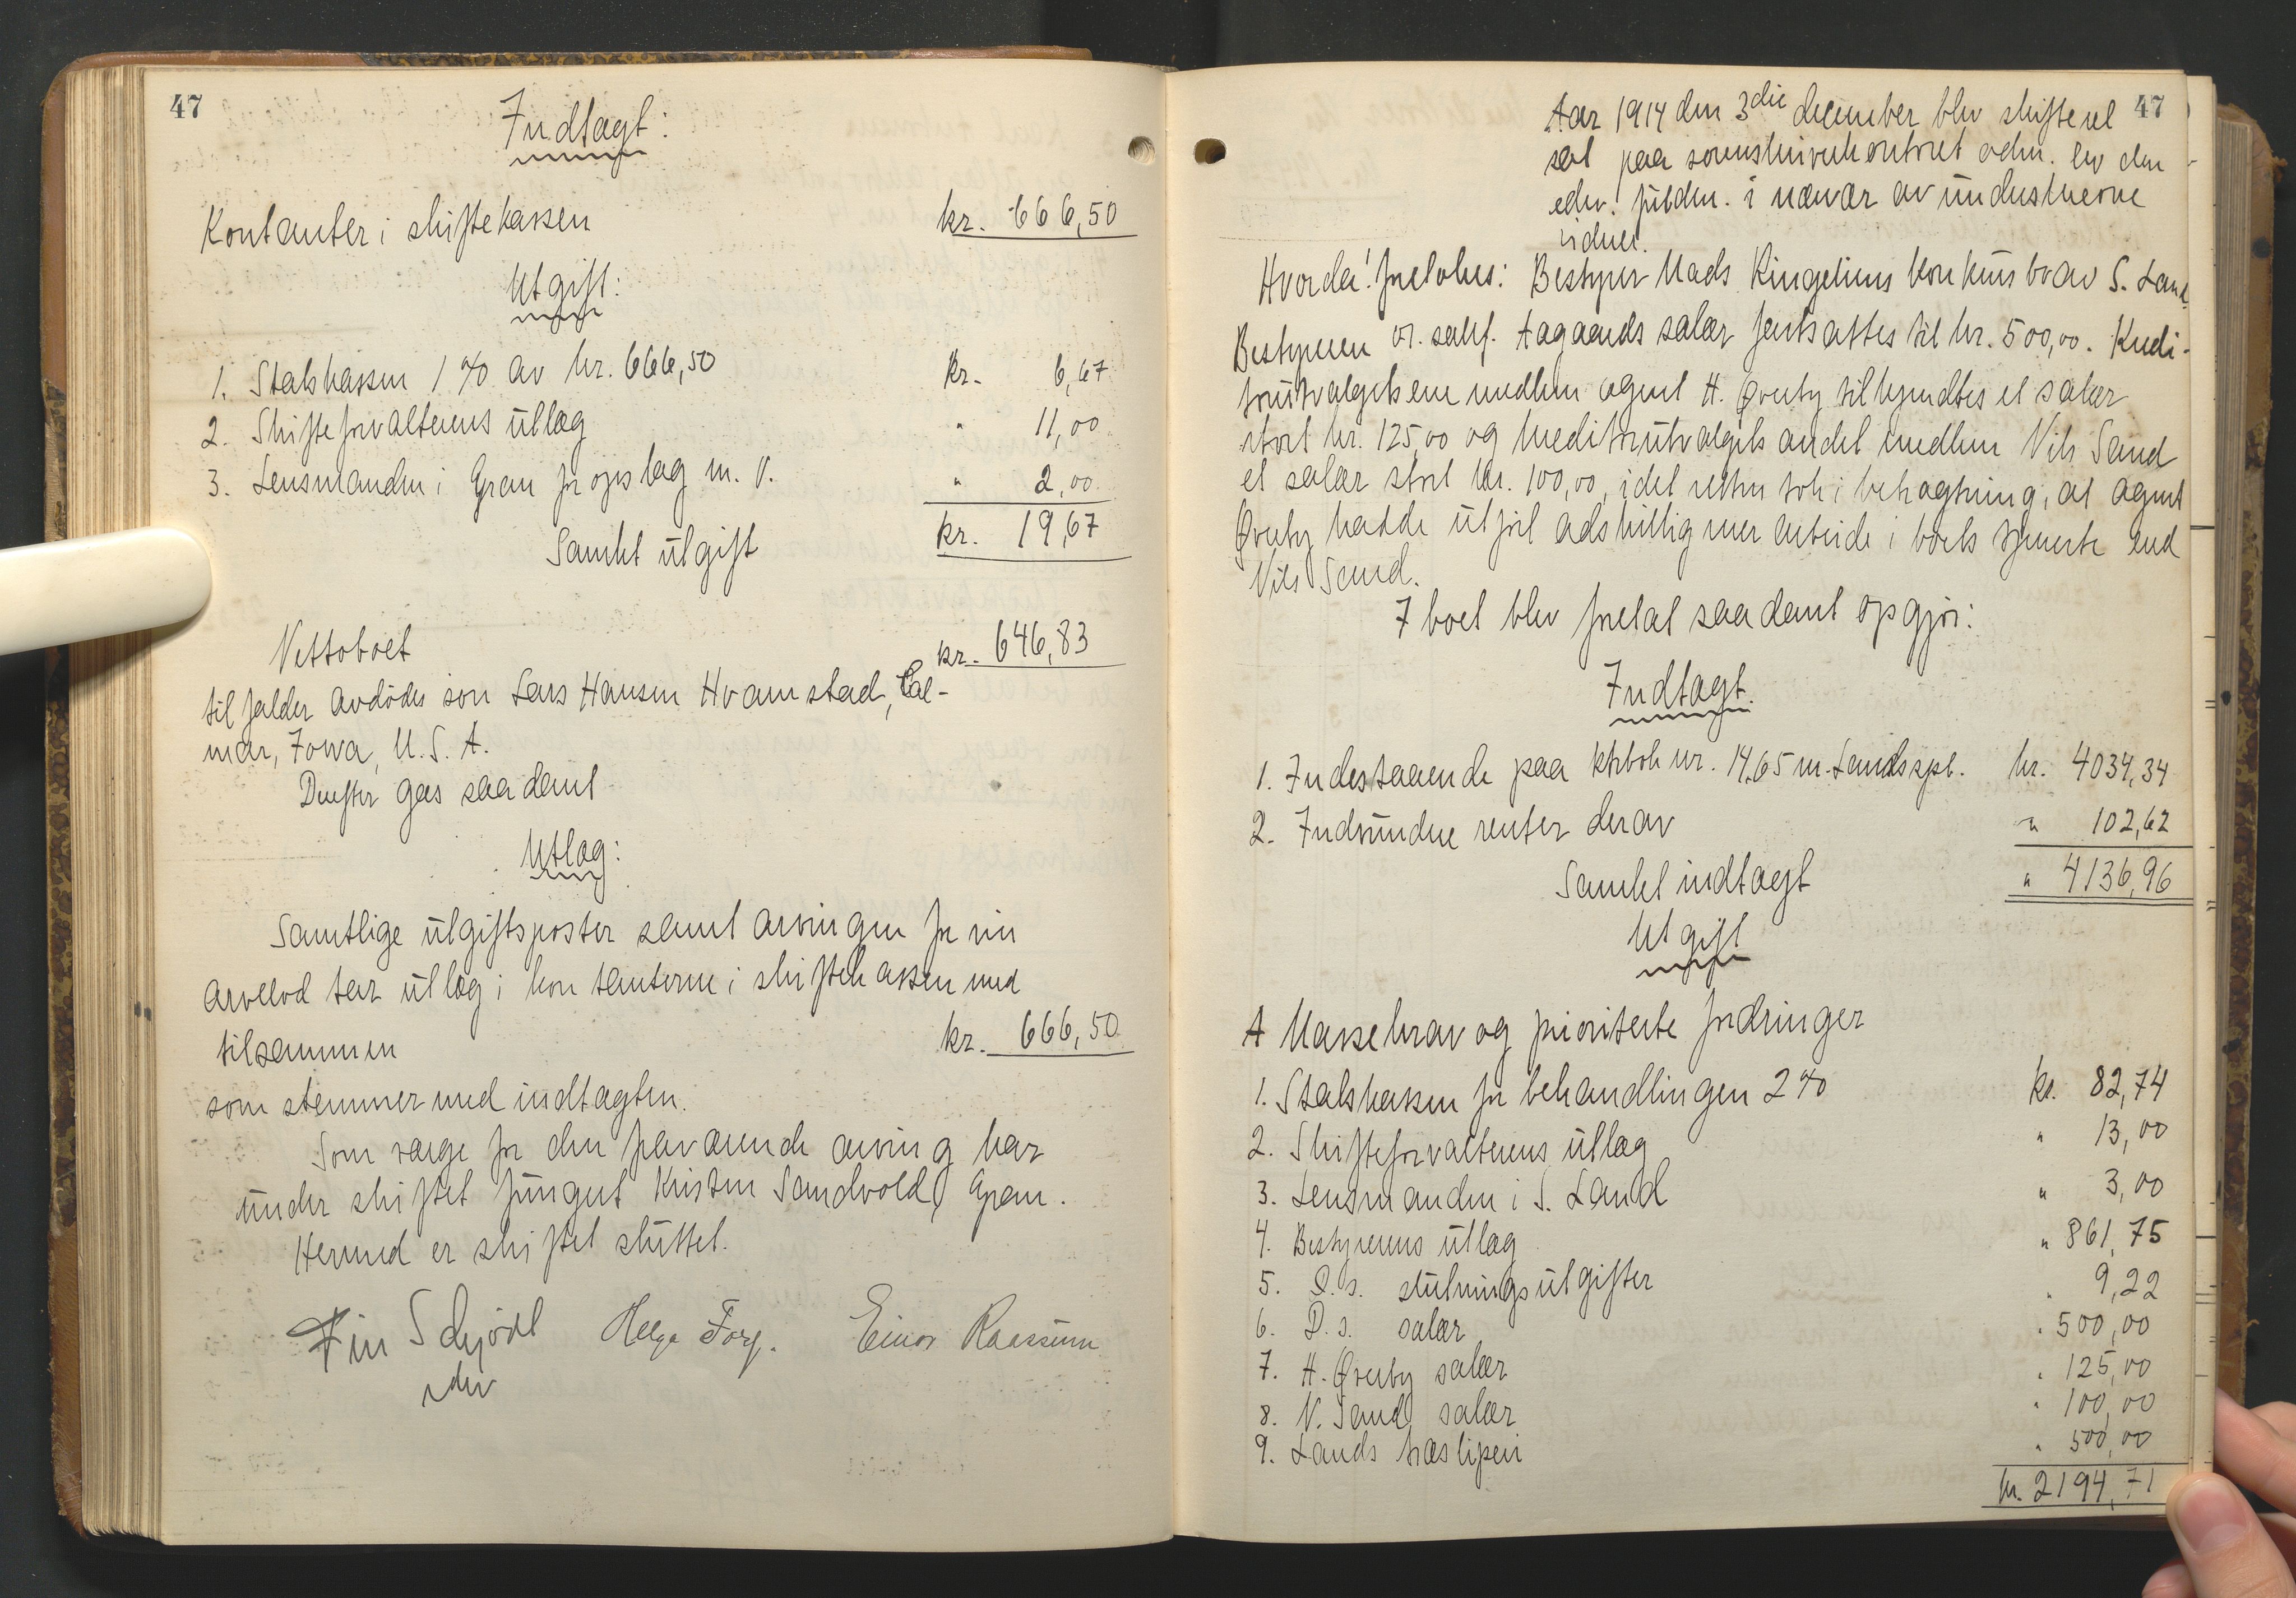 47
Indtægt:
Kontanter i skiftekassen kr. 666,50
Utgift:
1. Statskassen 1 % av kr. 666,50 kr. 6,67
2. Skifteforvalterens utlæg " 11,00
3. Lensmanden i Gran for opslag m. v. " 2,00
Samlet utgift kr. 19,67
Nettoboet kr. 646,83
tilfalder avdødes søn Lars Hansen Hvamstad, Cal-
mar, Iowa, U. S. A.
Derefter gøs saadant
Utlæg:
Samtlige utgiftsposter samt arvingen for sin
arvelod tar utlæg i kontanterne i skiftekassen med
tilsammen kr. 666,50
som stemmer med indtægten.
Som værge for den fraværende arving har
under skiftet fungert Kristen Sandvold, Gran.
Hermed er skiftet sluttet.
Fin Schjødt Helge Einar Raassum
47
Aar 1914 den 3die december blev skifteret
sat paa sorenskriverkontoret adm. av den
edsv. fuldm. i nærvær av undeskrevne
vidner.
Hvorda! foretokes: Bestyrer Mads Kingeliens konkursbo av S. Land.
Bestyreren or. sakf. Aagaards salær fastsattes til kr. 500,00. Kredi-
torutvalgets ene medlem agent H. Øverby tilkjendtes et salær
stort kr. 125,00 og kreditorutvalgets andet medlem Nils Sand
et salær stort kr. 100,00, idet retten tok i betragtning, at agent
Øverby hadde utført adskillig mer arbeide i boets tjeneste end
Nils Sand.
I boet blev foretat saadant opgjør:
Indtægt.
1. Indestaaende paa ktrbok nr. 1465 m. Lands spb. kr. 4034,34
2. Indvundne renter derav " 102,62
Samlet indtægt " 4136,96
Utgift
A Massekrav og prioriterte fordringer
1. Statskassen for behandlingen 2 % kr. 82,74
2. Skifteforvalterens utlæg " 13,00
3. Lensmanden i S. Land " 3,00
4. Bestyrerens utlæg " 861,75
5. D.s. slutningsutgifter " 9,22
6. D.s. salær " 500,00
7. H. Øverby salær " 125,00
8. N. Sand salær " 100,00
9. Lands træsliperi " 500,00
kr. 2194,71